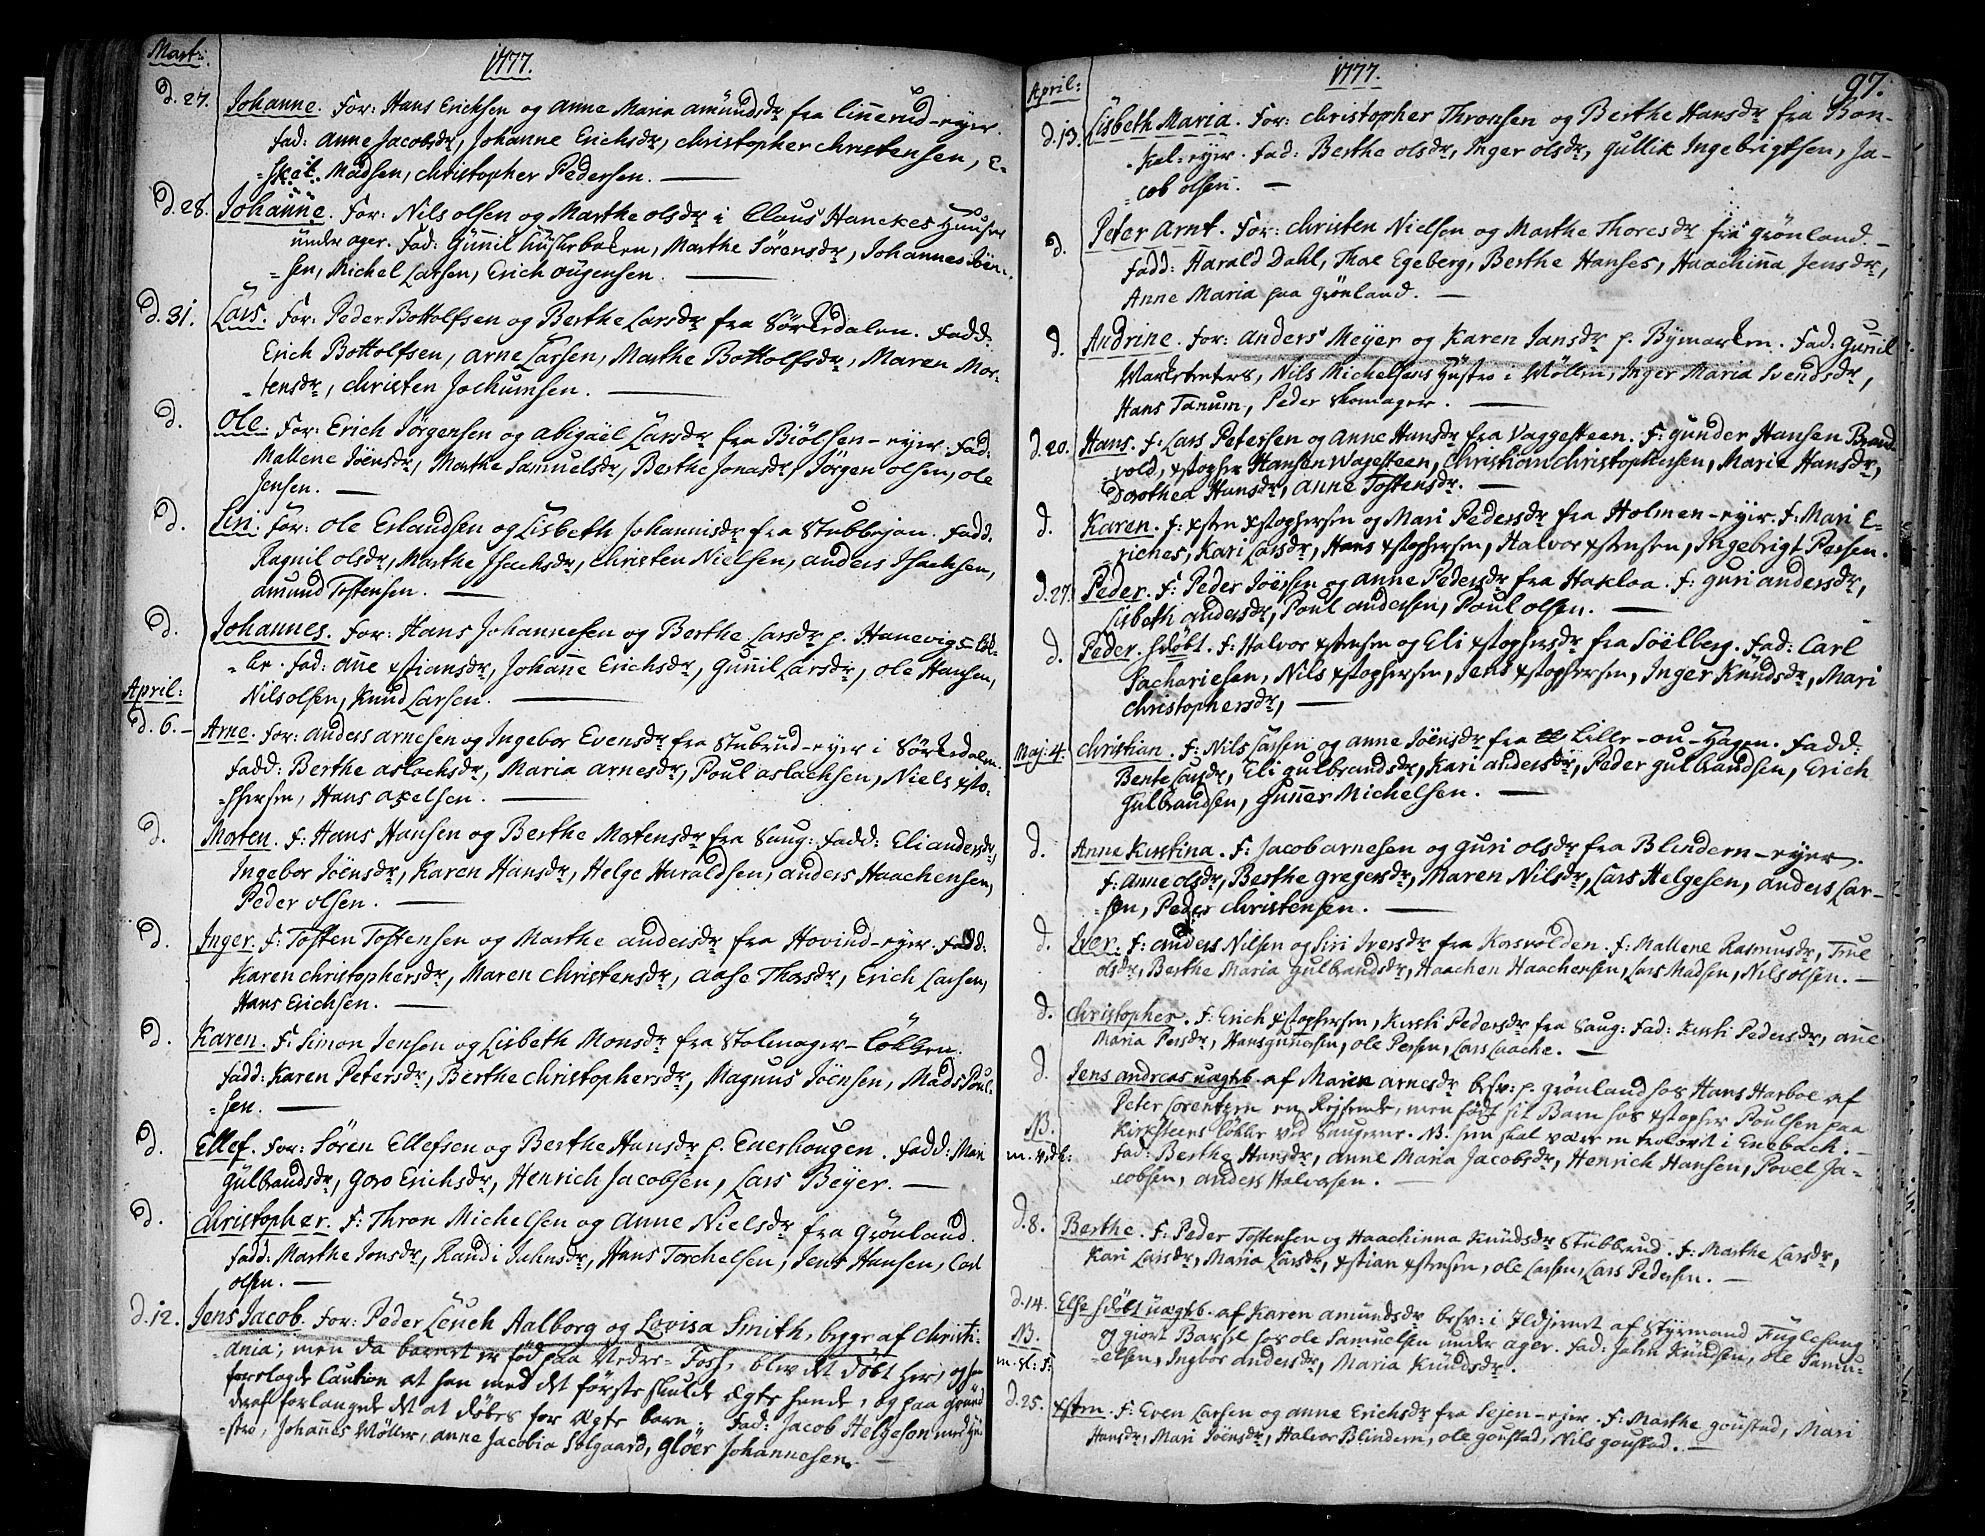 Mart:
1777.
d. 27. Johanne. For: Hans Erichsen og Anne Maria Amundsdr fra Linnerud-eyer.
Fad: Anne Jacobsdr, Johanne Erichsdr, Christopher Christensen, E-
-skel Madsen, Christopher Pedersen. —
d. 28. Johanne. For: Nils Olsen og Marthe Olsdr i Claus Hanckes Huuser
under ager. Fad: Gunnil, Marthe Sörensdr, Johannes Jön-
-sen, Michel Larsen, Erich Ougensen. —
d. 31. Lars. For: Peder Bottolfsen og Berthe Larsdr fra Sörkedalen. Fadd:
Erich Bottolfsen, Arne Larsen, Marthe Bottolfsdr, Maren Mor-
-tensdr, Christen Jochumsen. —
d. Ole: For: Erich Jörgensen og Abigaël Larsdr fra Biölsen-eyer. Fad.
Mallene Jöensdr, Marthe Samuelsdr, Berthe Jonasdr, Jörgen Olsen, Ole
Jensen. —
d. Siri. For: Ole Erlandsen og Lisbeth Johannisdr fra Stubberjan. Fadd.
Ragnil Olsdr, Marthe Isachsdr, Christen Nielsen, Anders Isachsen,
Amund Tostensen. —
d. Johannes. For: Hans Johannesen og Berthe Larsdr p. Hanevigs Löc-
-ke. Fad: Anne Xstiansdr, Johanne Erichsdr, Gunnil Larsdr, Ole Hansen,
Nils Olsen, Knud Larsen. —
April:
d. 6. Arne. For: Anders Arnesen og Ingebor Evensdr fra Stubrud-eyer i Sörkedalen.
Fadd: Berthe Aslachsdr, Maria Arnesdr, Poul Aslachsen, Niels Xsto-
-phersen, Hans Axelsen. —
d. Morten. F: Hans Hansen og Berthe Mortensdr fra Saug: Fadd: Eli Andersdr,
Ingebor Jöensdr, Karen Hansdr, Helge Haraldsen, Anders Haachensen,
Peder Olsen. —
d. Inger. F: Tosten Tostensen og Marthe Andersdr fra Hovind-eyer. Fadd:
Karen Christophersdr, Maren Christensdr, Aase Thorsdr, Erich Larsen,
Hans Erichsen. —
d. Karen. F: Simon Jensen og Lisbeth Monsdr fra Stolmager-Löchen.
Fadd: Karen Petersdr, Berthe Christophersdr, Magnus Jöensen, Mads Poul-
-sen. —
d. Ellef. For: Sören Ellefsen og Berthe Hansdr p. Enerhougen. Fadd: Mari
Gülbrandsdr, Goro Erichsdr, Henrich Jacobsen, Lars Beyer. —
d. Christopher. F: Thron Michelsen og Anne Nielsdr fra Grönland.
Fadd: Marthe Jonsdr, Randi Juhnsdr, Hans Torchelsen, Jens Hansen, Carl
Olsen. —
d. 12. Jens Jacob. For: Peder Leuch Aalborg og Lovisa Smith, begge af Christi-
-ania; men da barnet er född paa Nedre-Foss, blev det döbt her, og han
forelagde Caution at han med det förste skulde ægte hende, og paa grund
deraf forlangede det at döbes for ægte barn. Fad: Jacob Helgeson med Hu-
-stro, Johannes Möller, Anne Jacobia Solgaard, Glöer Johannesen. —
1777.
97.
April:
d. 13. Lisbeth Maria. For: Christopher Thronsen og Berthe Hansdr fra Bon-
-kal-eyer. Fad: Berthe Olsdr, Inger Olsdr, Gullik Ingebrigtsen, Ja-
-cob Olsen. —
d. Peter Arnt. For: Christen Nielsen og Marthe Thoresdr fra Grönland. —
Fadd: Harald Dahl, Thoe Egeberg, Berthe Hanses, Haachinna Jensdr,
Anne Maria paa Grönland. —
d. Andrine. For: Anders Meyer og Karen Jansdr p. Bymarken. Fad: Gunil
, Nils Michelsens Hustro i Möllen, Inger Maria Svendsdr,
Hans Tanum, Peder Skomager. —
d. 20. Hans. F: Lars Petersen og Anne Hansdr fra Vaggesteen. F: Gunder Hansen Brand-
vold, Xstopher Hansen Wagesteen, Christian Christophersen, Marie Hansdr,
Dorothea Hansdr, Anne Tostensdr. —
d. Karen. F: Xsten Xstophersen og Mari Pedersdr fra Holmen-eyer. F: Mari E-
riches, Kari Larsdr, Hans Xstophersen, Halvor Xstensen, Ingebrigt Persen.
d. 27. Peder. F: Peder Joensen og Anne Pedersdr fra Hakloa. F: Guri Andersdr,
Lisbeth Andersdr, Poul Andersen, Poul Olsen. —
d. Peder. hdöbt. F: Halvor Xstensen og Eli Xstophersdr fra Soelberg. Fad: Carl
Sachariesen, Nils Xstophersen, Jens Xstophersen, Inger Knudsdr, Mari
Christophersdr, —
Maj: 4. Christian. F: Nils Larsen og Anne Jöensdr fra Lille-ou-Hagen. Fadd:
Bente Larsdr, Eli Gulbrandsdr, Kari Andersdr, Peder Gulbrandsen, Erich
Gulbrandsen, Gunner Michelsen. —
d. Anne Kirstina. F: Jacob Arnesen og Guri Olsdr fra Blindern-eyer.
F: Anne Olsdr, Berthe Gregersdr, Maren Nilsdr, Lars Helgesen, Anders Lar-
-sen, Peder Christensen. —
d. Iver. F: Anders Nilsen og Siri Iversdr fra Korsvolden. F: Mallene Rasmusdr, True
Olsdr, Berthe Maria Gulbrandsdr, Haachen Haachensen, Lars Madsen, Nils Olsen. —
d. Christopher. F: Erich Xstophersen, Kirsti Pedersdr fra Saug: Fad: Kirsti Pedersdr, Anne
Maria Persdr, Hans Gunnersen, Ole Persen, Lars Laache. —
d. Jens Andreas uægtb. af Maren Arnesdr besv: p. Grönland hos Hans Harboe af
Peter Lorentzen en Rejsende, men födt sit Barn hos Xstopher Poulsen paa
NB. Kirksteens Lökke ved Saugerne. NB. hun skal være trolovet i Enebach. —
m. v. dr: Fad: Berthe Hansdr, Anne Maria Jacobsdr, Henrich Hansen, Povel Ja-
cobsen, Anders Halvorsen. —
d. 8. Berthe. F: Peder Tostensen og Haachinna Knudsdr Stubbrud. F: Marthe Larsdr,
Kari Larsdr, Maria Larsdr, Xstian Xstensen, Ole Larsen, Lars Pedersen. —
d. 14. Else hdöbt uægtb. af Karen Amundsdr besv: i Ildjernet af Styrmand Fuglesang
NB. og giort Barsel hos Ole Samuelsen under ager. Fad: John Knudsen, Ole Samu-
m. st: F: elsen, Ingbor Andersdr, Maria Knudsdr.
d. 25. Xsten. F: Even Larsen og Anne Erichsdr fra Sejen-ejer. F: Marthe Goustad, Mari
Hansdr, Mari Jöensdr, Halvor Blindern, Ole Goustad, Nils Goustad. —